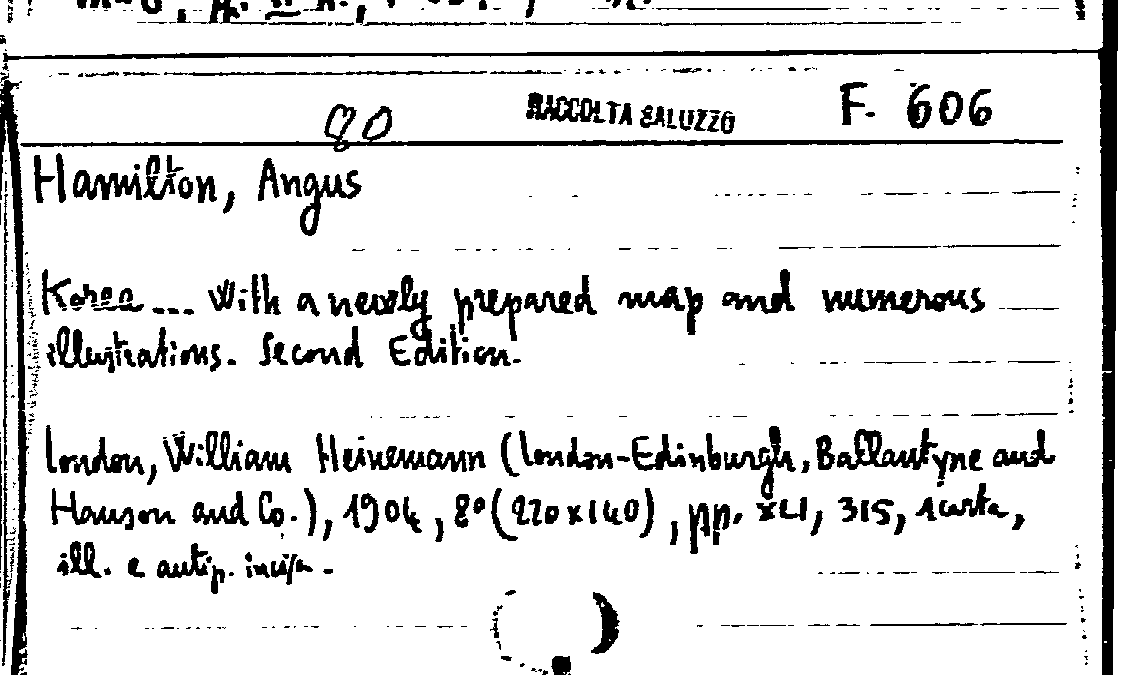 80 RACCOLTA SALUZZO F. 606
Hamilton, Angus
Korea... With a newly prepared map and numerous
illustrations. Second Edition.
London, William Heinemann (London-Edinburgh, Ballantyne and
Hanson and Co.), 1904, 8º (220x140), pp. XLI, 315, 1 carta,
ill. e antip. incisa.